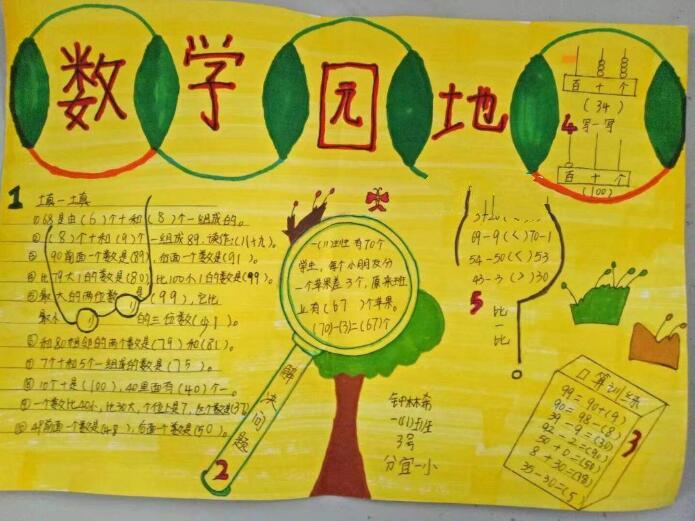 数学园地
1 填一填
①68是由(6)个十和(8)个一组成的。
②(8)个十和(9)个一组成89.读作:(八十九)。
③90前面一个数是(89),后面一个数是(91)。
④比79大1的数是(80),比100小1的数是(99)。
⑤最大的两位数是(99),它比
最小的三位数(少1)。
⑥和80相邻的两个数是(79)和(81)。
⑦7个十和5个一组成的数是(75)。
⑧10个十是(100),40里面有(40)个一。
⑨一个数比40小,比30大,个位上是7,这个数是(37)
⑩49前面一个数是(48),后面一个数是(50)。
一(1)班有70个
学生,每个小朋友分
一个苹果差3个,原来班
上有(67)个苹果。
(70)-(3)=(67)个
解决问题
2
钟林希
一(1)班
3号
分宜一小
百十个
(34)
4 写一写
百十个
(100)
69-9(<)70-1
54-50(<)53
43-3(>)30
5 比一比
口算训练
3
99=90+(9)
90=98-(8)
39-9=(30)
92-2=(90)
50+0=(50)
8+30=(38)
35-30=(5)